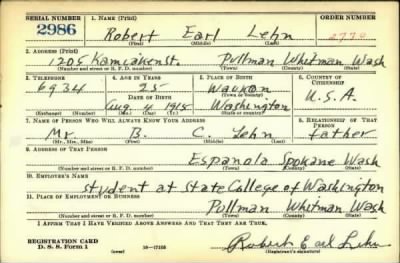 SERIAL NUMBER 1. NAME (Print) ORDER NUMBER
2986 Robert Earl Lehn 2770
(First) (Middle) (Last)
2. ADDRESS (Print)
1205 Kamiaken St. Pullman Whitman Wash
(Number and street or R. F. D. number) (Town) (County) (State)
3. TELEPHONE 4. AGE IN YEARS 5. PLACE OF BIRTH 6. COUNTRY OF CITIZENSHIP
6934 25 Waukon U.S.A.
DATE OF BIRTH (Town or county)
Aug. 4 1915 Washington
(Exchange) (Number) (Mo.) (Day) (Yr.) (State or country)
7. NAME OF PERSON WHO WILL ALWAYS KNOW YOUR ADDRESS 8. RELATIONSHIP OF THAT PERSON
Mr. B. C. Lehn father
(Mr., Mrs., Miss) (First) (Middle) (Last)
9. ADDRESS OF THAT PERSON
Espanola Spokane Wash
(Number and street or R. F. D. number) (Town) (County) (State)
10. EMPLOYER'S NAME
student at State College of Washington
11. PLACE OF EMPLOYMENT OR BUSINESS
Pullman Whitman Wash
(Number and street or R. F. D. number) (Town) (County) (State)
I AFFIRM THAT I HAVE VERIFIED ABOVE ANSWERS AND THAT THEY ARE TRUE.
REGISTRATION CARD
D. S. S. Form 1 (over) 16—17105 Robert Earl Lehn
(Registrant's signature)